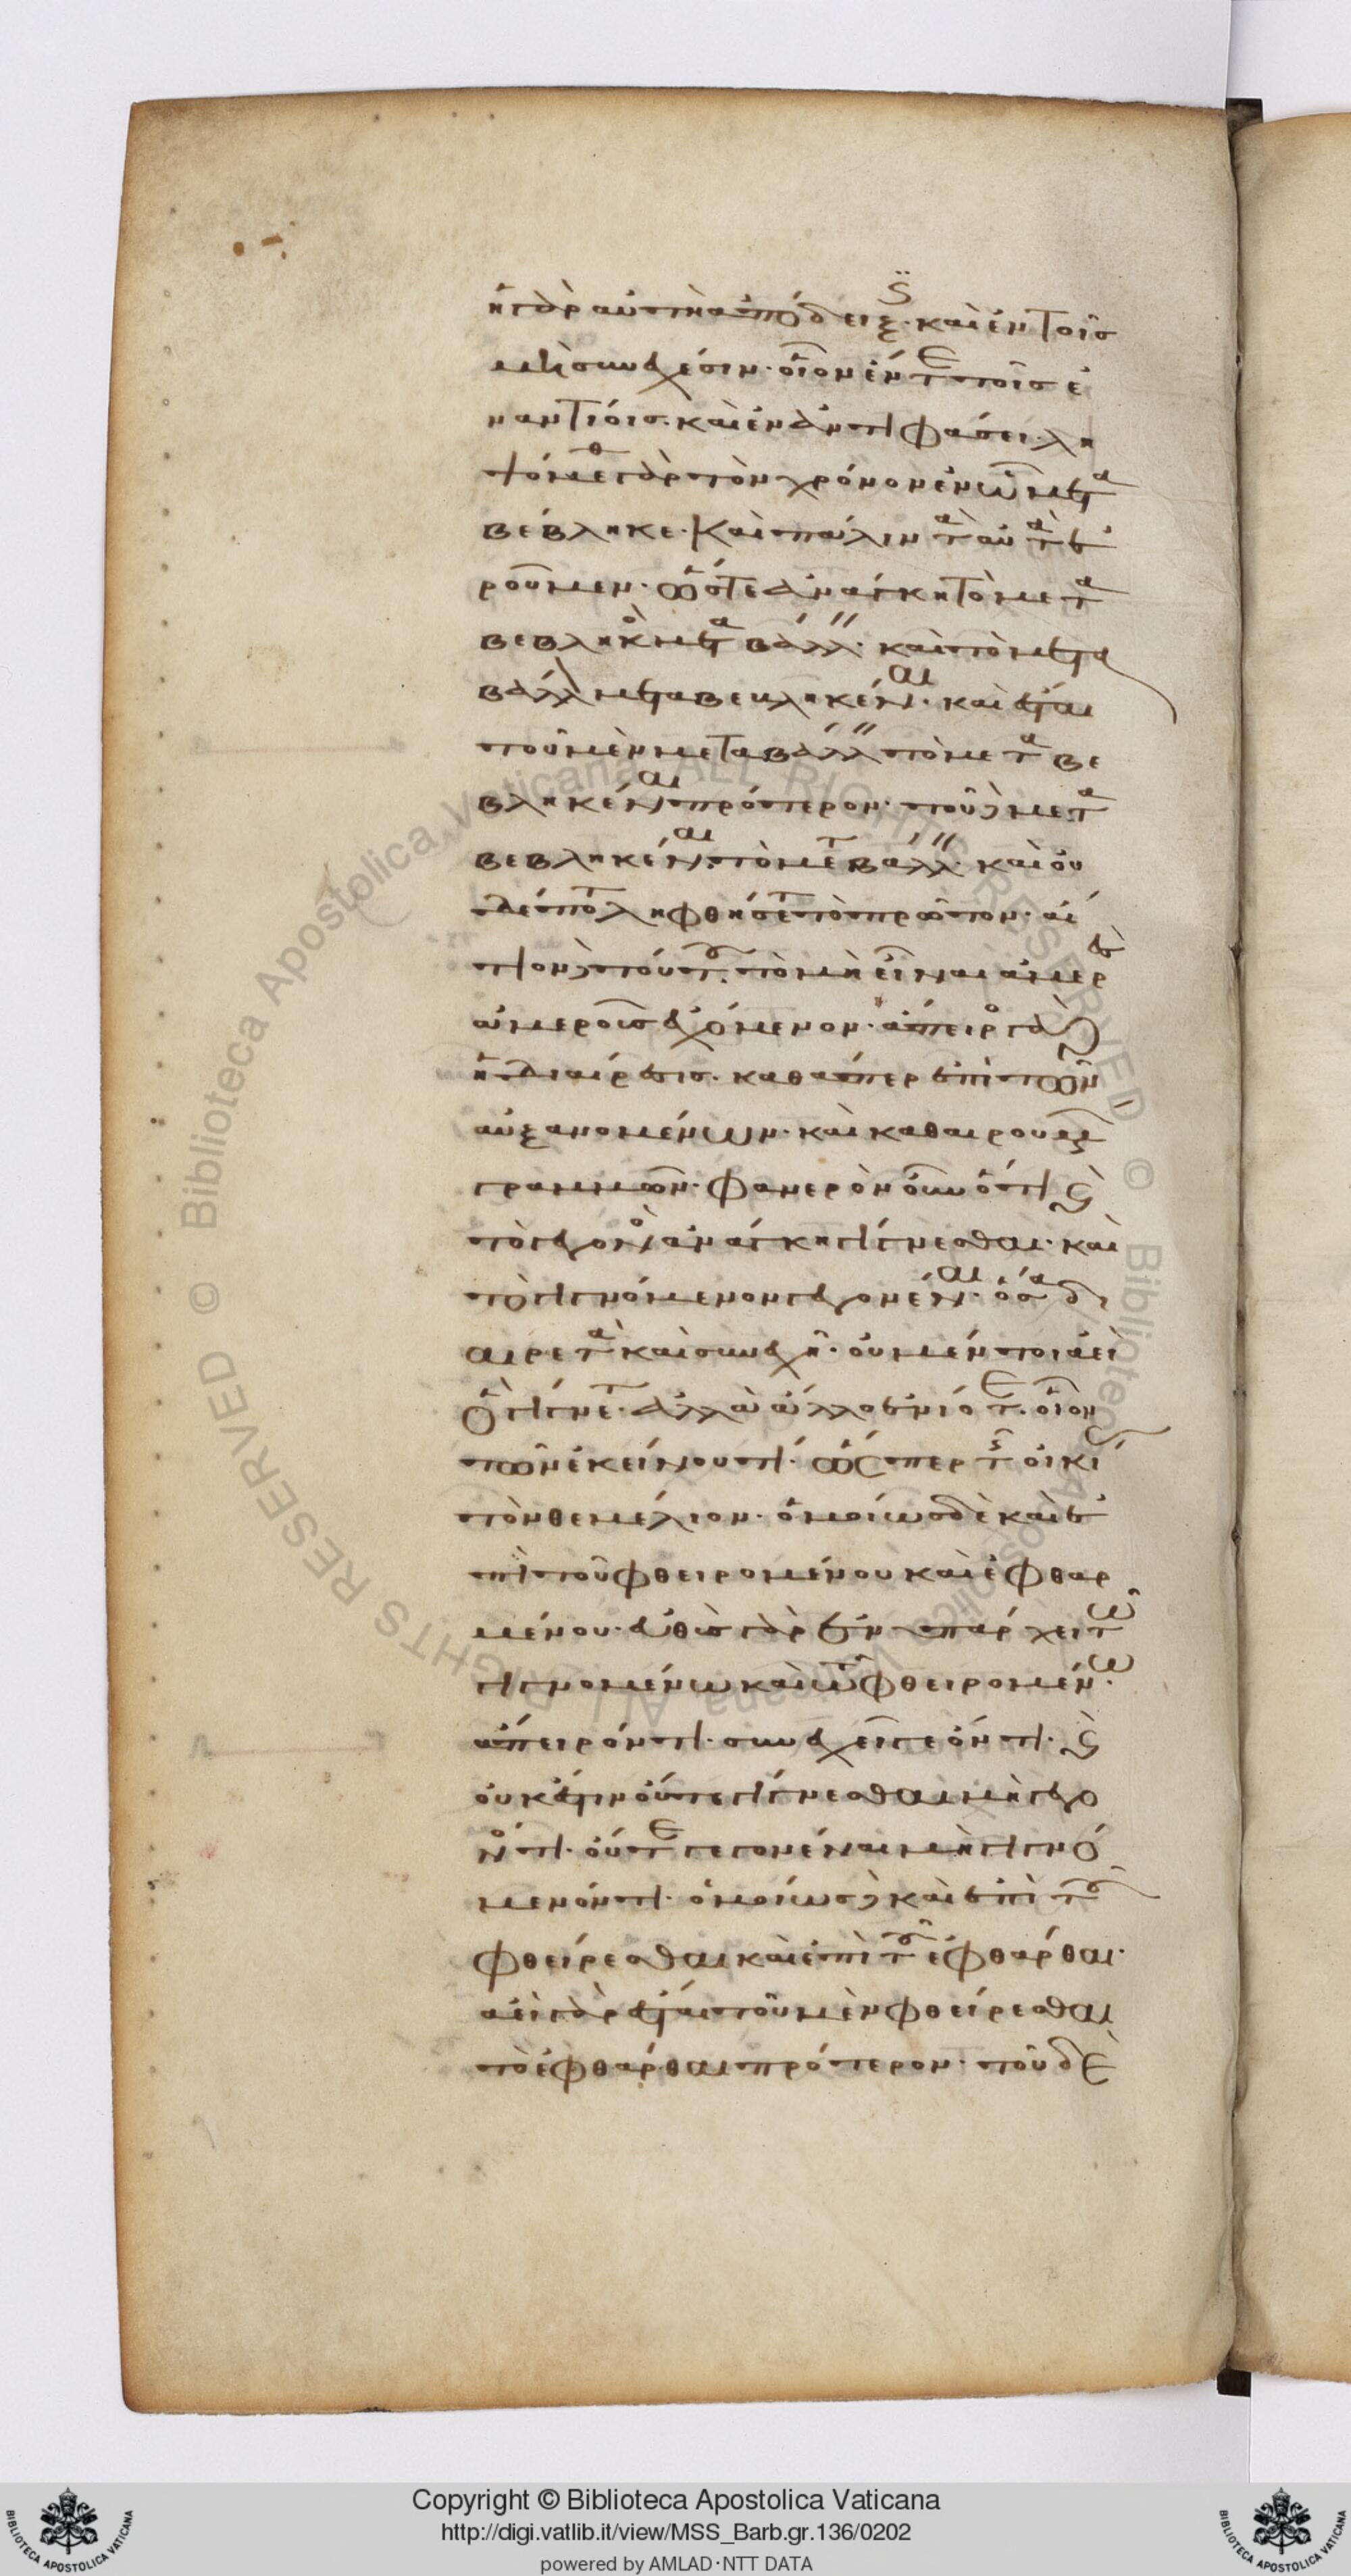 ἡ γὰρ αὐτὴ ἀπόδειξις· καὶ ἐν τοῖς
μὴ συνεχέσιν· οἷον ἔν τε τοῖς ἐ
ναντίοις· καὶ ἐν ἀντιφάσει· λη
ψόμεθα γὰρ τὸν χρόνον ἐν ᾧ μετα
βέβληκε· καὶ πάλιν ταὐτὰ ἐ
ροῦμεν· ὥστε ἀνάγκη τὸ μετα
βεβληκὸς μεταβάλλειν· καὶ τὸ μετα
βάλλον μεταβεβληκέναι· καὶ ἔσται
τοῦ μὲν μεταβάλλειν τὸ μεταβε
βληκέναι πρότερον· τοῦ δὲ μετα
βεβληκέναι τὸ μεταβάλλειν· καὶ οὐ
δέποτε ληφθήσεται τὸ πρῶτον· αἴ
τιον δὲ τούτου τὸ μὴ εἶναι ἀμερὲς
ἀμεροῦς ἐχόμενον· ἄπειρος γὰρ
ἡ διαίρεσις· καθάπερ ἐπὶ τῶν
αὐξανομένων· καὶ καθαιρουμένων
γραμμῶν· φανερὸν οὖν ὅτι καὶ
τὸ γεγονὸς ἀνάγκη γίγνεσθαι· καὶ
τὸ γιγνόμενον γεγονέναι· ὅσα δι
αιρετὰ καὶ συνεχῆ· οὐ μέντοι ἀεὶ
ὃ γίγνεται· ἀλλὰ ἄλλο ἐνίοτε· οἷον
τῶν ἐκείνου τι· ὥσπερ τῆς οἰκίας
τὸν θεμέλιον· ὁμοίως δὲ καὶ ἐ
πὶ τοῦ φθειρομένου καὶ ἐφθαρ
μένου· εὐθὺς γὰρ ἐνυπάρχει τῷ
γιγνομένῳ καὶ τῷ φθειρομένῳ
ἄπειρόν τι· συνεχεῖ γε ὄντι· καὶ
οὐκ ἔστιν οὔτε γίγνεσθαι μὴ γεγο
νός τι· οὔτε γεγονέναι μὴ γιγνό
μενόν τι· ὁμοίως δὲ καὶ ἐπὶ τοῦ
φθείρεσθαι καὶ ἐπὶ τοῦ ἐφθάρθαι·
ἀεὶ γὰρ ἔσται τοῦ μὲν φθείρεσθαι
τὸ ἐφθάρθαι πρότερον· τοῦ δὲ
Copyright © Biblioteca Apostolica Vaticana
http://digi.vatlib.it/view/MSS_Barb.gr.136/0202
powered by AMLAD·NTT DATA